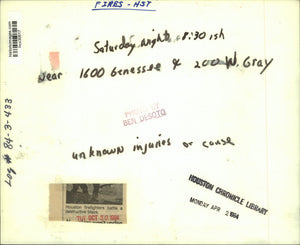 FIRES - HST
Saturday night 8:30 ish
near 1600 Genessee & 200 W. Gray
PHOTO BY
BEN DESOTO
unknown injuries or cause
Log # 84-3-433
HOUSTON CHRONICLE LIBRARY
MONDAY APR 2 1984
Houston firefighters battle a
destructive blaze.
OCT 30 1984